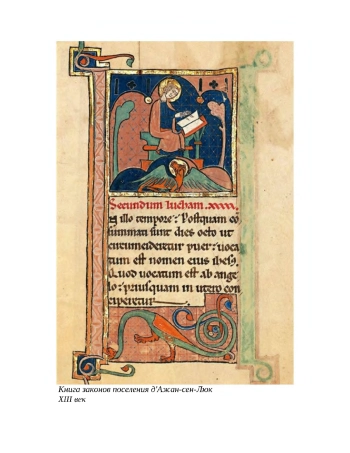 Secundum lucham. xxxx.
illo tempore: Postquam cō
summati sunt dies octo ut
circumcideretur puer: uoca
tum est nomen eius ihesꝰ.
Quod uocatum est ab ange
lo: priusquam in utero con
ciperetur
Книга законов поселения д'Ажан-сен-Люк
XIII век